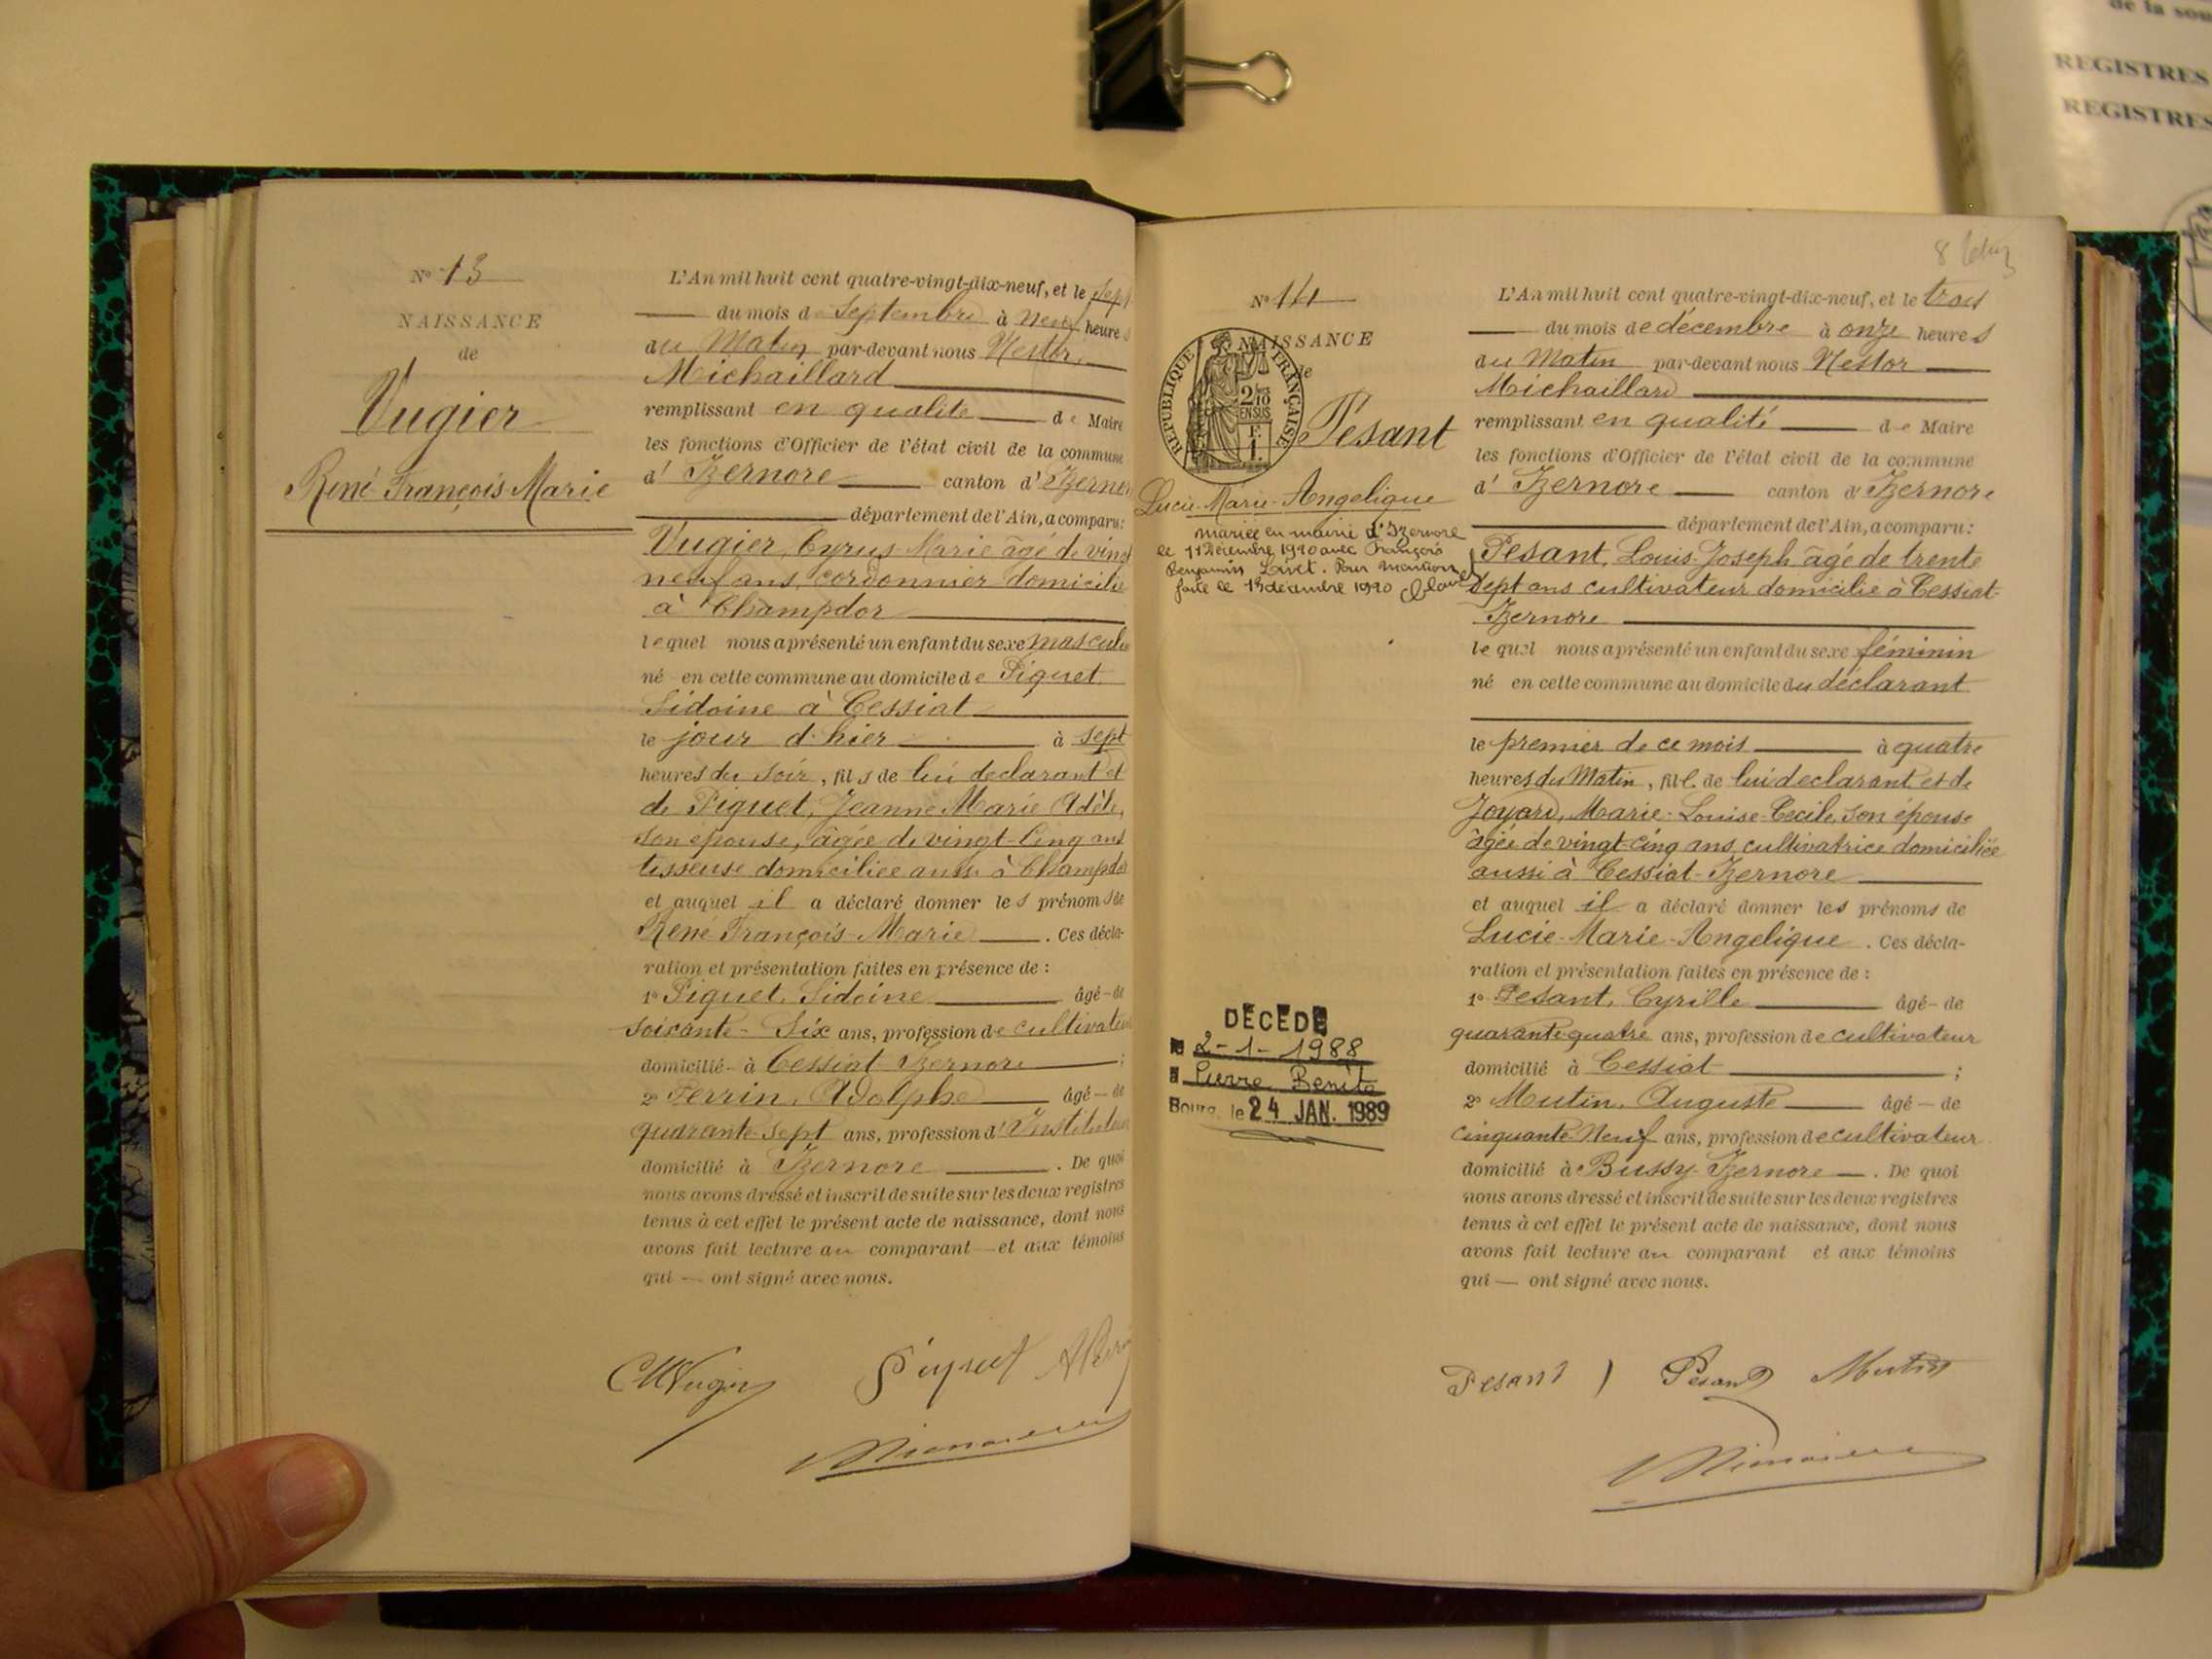 de la sou
REGISTRES
REGISTRES
N° 13
NAISSANCE
de
Vugier
René François Marie
L'An mil huit cent quatre-vingt-dix-neuf, et le Sept
du mois de Septembre à Neuf heures
du Matin par-devant nous Nestor
Michaillard
remplissant en qualité de Maire
les fonctions d'Officier de l'état civil de la commune
d' Izernore canton d'Izernor
département de l'Ain, a comparu:
Vugier, Cyrus Marie âgé de vingt
neuf ans, cordonnier domicilié
à Champdor
lequel nous a présenté un enfant du sexe masculin
né en cette commune au domicile de Piguet
Sidoine à Cessiat
le jour d'hier à sept
heures du soir, fils de lui declarant et
de Piguet, Jeanne Marie Adèle,
son epouse, âgée de vingt-cinq ans
tisseuse domiciliée aussi à Champdor
et auquel il a déclaré donner les prénoms de
René François-Marie. Ces décla-
ration et présentation faites en présence de :
1° Piguet, Sidoine âgé de
soixante-Six ans, profession de cultivateur
domicilié à Cessiat Izernore ;
2° Perrin, Adolphe âgé de
quarante-sept ans, profession d'Instituteur
domicilié à Izernore. De quoi
nous avons dressé et inscrit de suite sur les deux registres
tenus à cet effet le présent acte de naissance, dont nous
avons fait lecture au comparant et aux témoins
qui — ont signé avec nous.
CMVugier Piguet APerrin
8
N° 14
NAISSANCE
de
RÉPUBLIQUE FRANÇAISE
2/10
EN SUS
Pésant
Lucie-Marie-Angelique
mariée en mairie d'Izernore
le 11 décembre 1920 avec François
Benjamin Livet. Pour mention
faite le 13 décembre 1920
DÉCÉDÉ
le 2-1-1988
à Pierre Bénite
Bourg, le 24 JAN. 1989
L'An mil huit cent quatre-vingt-dix-neuf, et le trois
du mois de décembre à onze heures
du Matin par-devant nous Nestor
Michaillard
remplissant en qualité de Maire
les fonctions d'Officier de l'état civil de la commune
d' Izernore canton d'Izernore
département de l'Ain, a comparu:
Pesant, Louis-Joseph âgé de trente
sept ans cultivateur domicilié à Cessiat-
Izernore
lequel nous a présenté un enfant du sexe féminin
né en cette commune au domicile du déclarant
le premier de ce mois à quatre
heures du Matin, fille de lui declarant et de
Joyard, Marie-Louise-Cecile, son épouse
âgée de vingt-cinq ans, cultivatrice domiciliée
aussi à Cessiat-Izernore
et auquel il a déclaré donner les prénoms de
Lucie-Marie-Angelique. Ces décla-
ration et présentation faites en présence de :
1° Pesant, Cyrille âgé de
quarante-quatre ans, profession de cultivateur
domicilié à Cessiat ;
2° Mutin, Auguste âgé de
cinquante-Neuf ans, profession de cultivateur
domicilié à Bussy-Izernore. De quoi
nous avons dressé et inscrit de suite sur les deux registres
tenus à cet effet le présent acte de naissance, dont nous
avons fait lecture au comparant et aux témoins
qui — ont signé avec nous.
Pesant Pesant Mutin